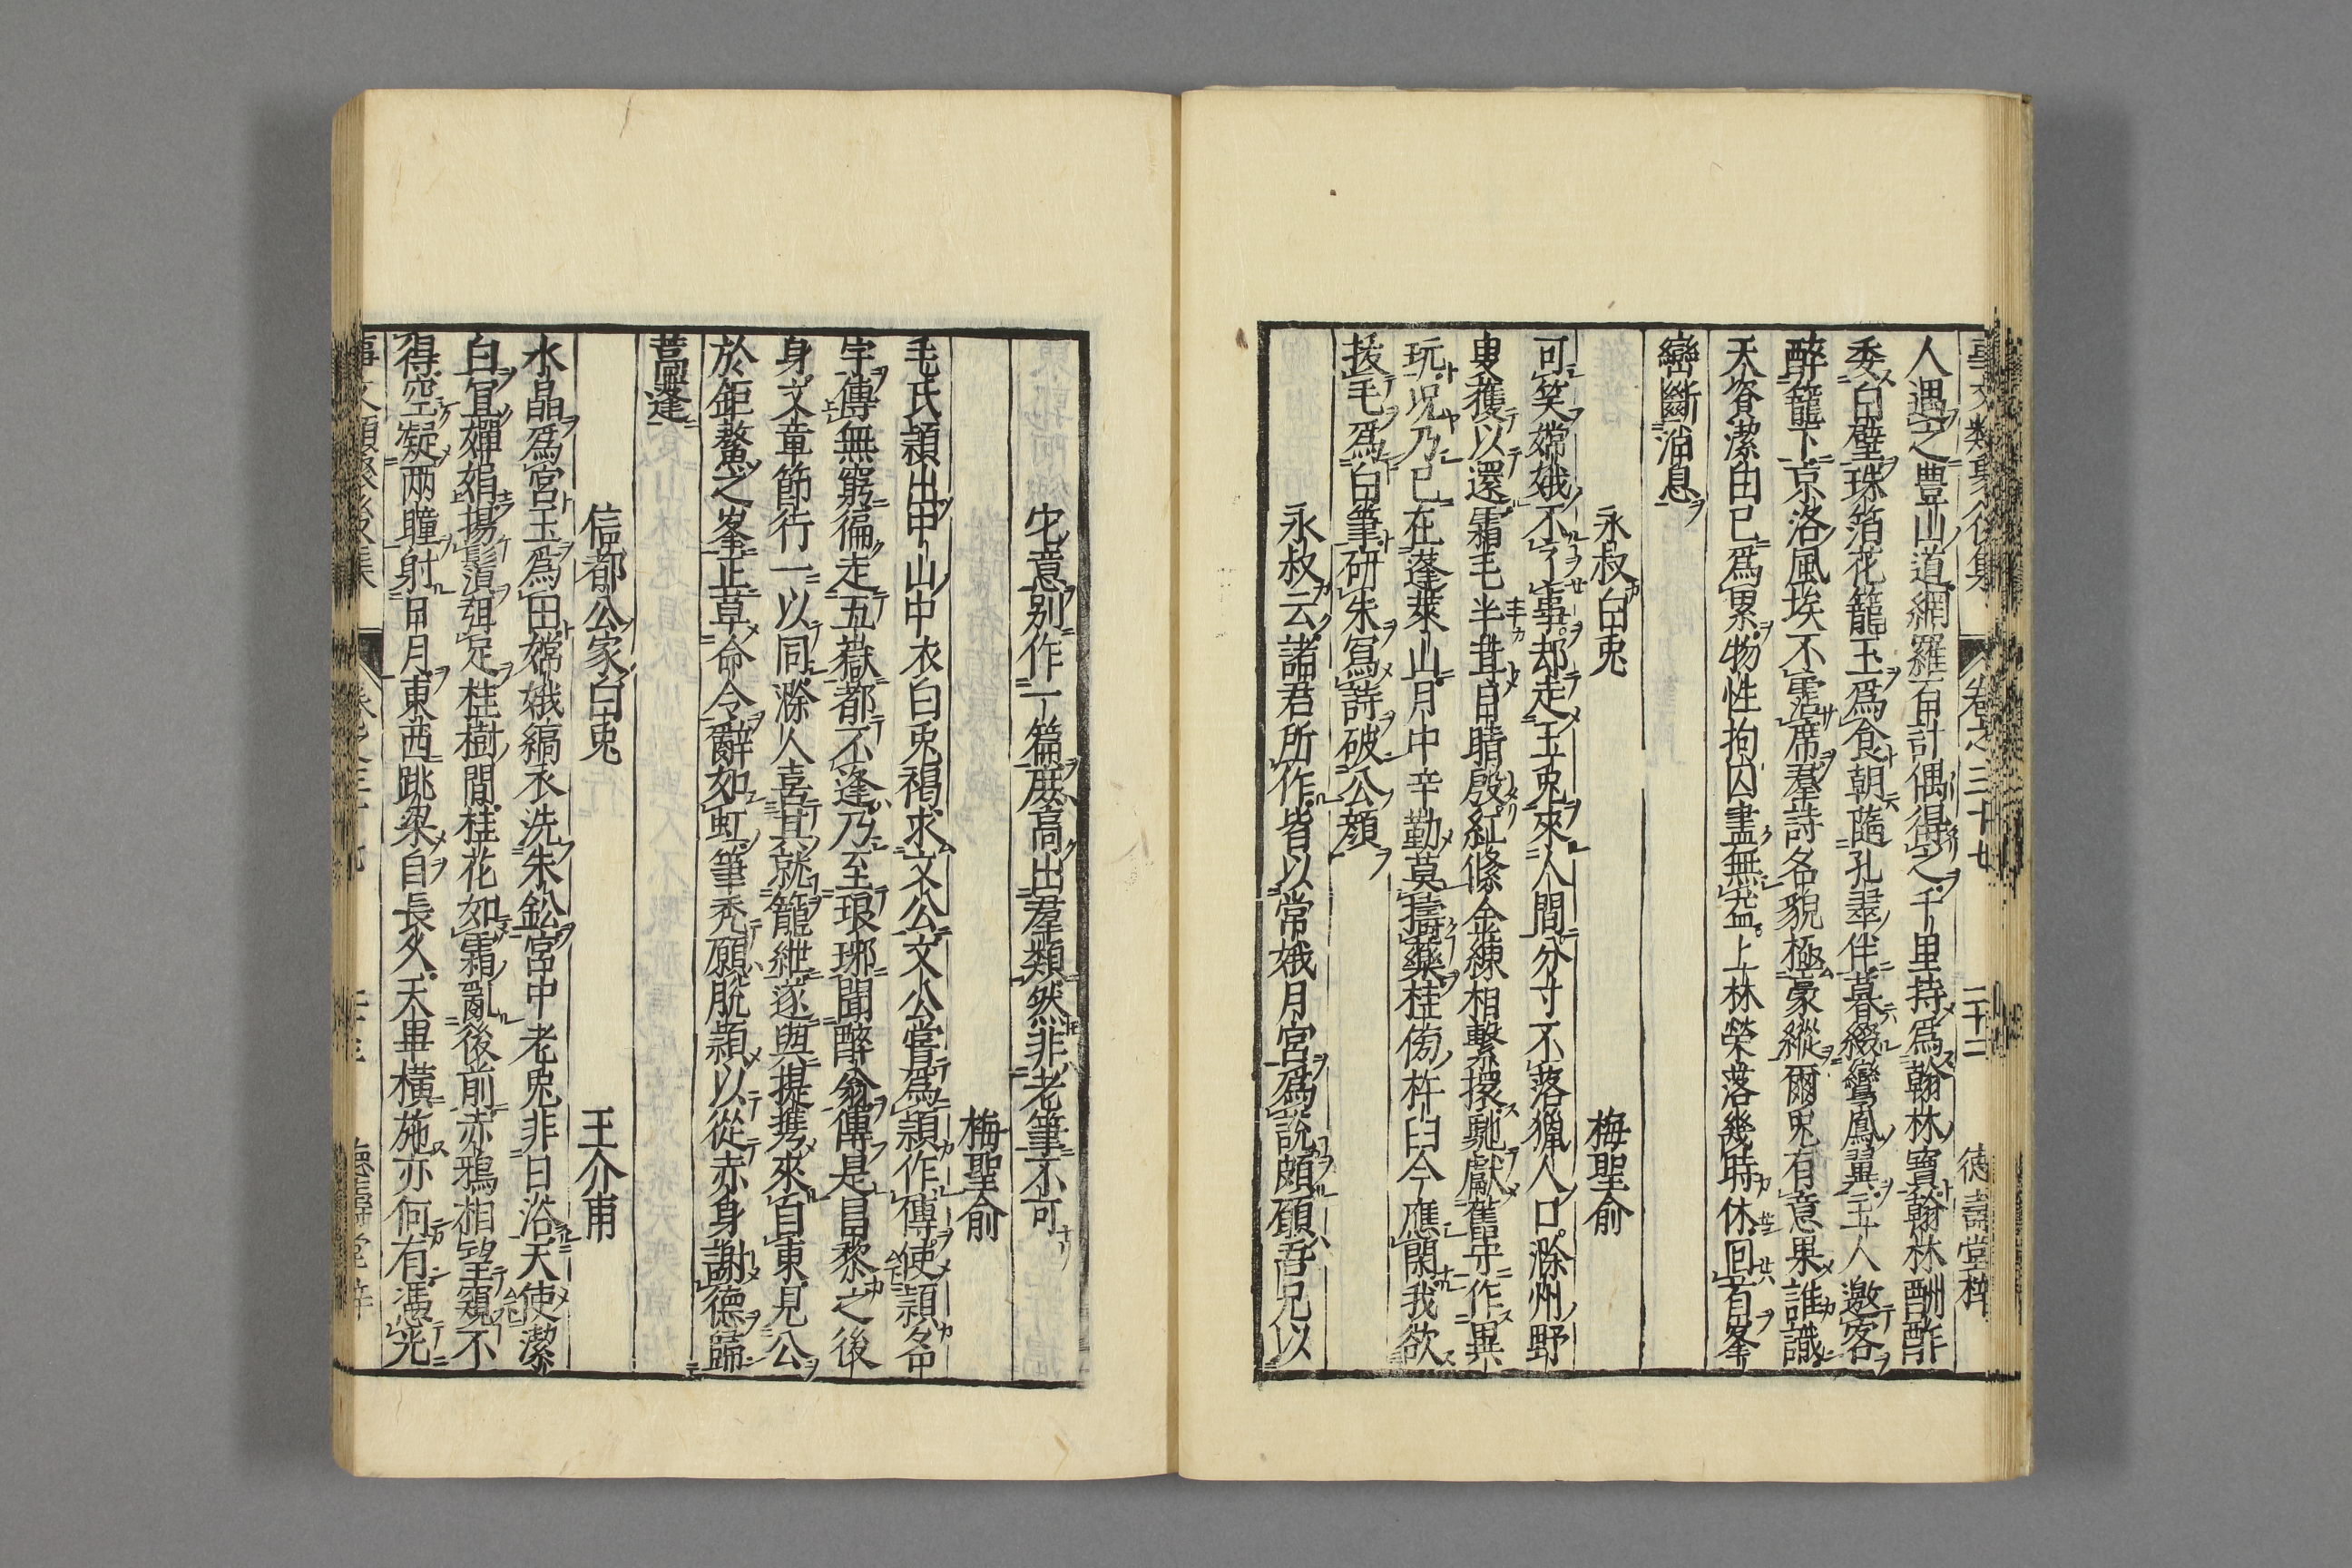 事文類聚後集 卷之三十七 二十二 德壽堂梓
人遇之豊山道網羅百計偶得之千里持爲翰林寶翰林酬酢
委白璧珠箔花籠玉爲食朝隨孔翠伴暮綴鸞鳳翼主人邀客
醉籠下京洛風埃不霑席羣詩名貌極豪縱爾兎有意果誰識
天資潔白已爲累物性拘囚盡無益上林榮落幾時休回首峯
巒斷消息
永叔白兎 梅聖俞
可笑嫦娥不了事却走玉兎來人間分寸不落獵人口滁州野
叟獲以還霜毛半茸目睛殷紅絛金練相繫擐馳獻舊守作異
玩况乃已在蓬萊山月中辛勤莫擣藥桂傍杵臼今應閑我欲
拔毛爲白筆研朱寫詩破公顔
永叔云諸君所作皆以常娥月宮爲說頗願吾兄以
它意别作一篇庶高出羣類然非老筆不可
梅聖俞
毛氏頴出中山中衣白兎褐求文公文公嘗爲頴作傳使頴名
字傳無窮徧走五嶽都不逢乃至琅琊聞醉翁傳是昌黎之後
身文章節行一以同滁人喜其就籠紲遂與提携來自東見公
於鉅鰲之峯正草命令辭如虹筆禿願脫頴以從赤身謝德歸
蒿蓬
信都公家白兎 王介甫
水晶爲宮玉爲田嫦娥縞衣洗朱鈆宮中老兎非日浴天使潔
白宜嬋娟揚鬚湏弭足桂樹間桂花如霜亂後前赤鴉相望窺不
得空凝兩瞳射日月東西跳梁自長久天畢橫施亦何有憑光